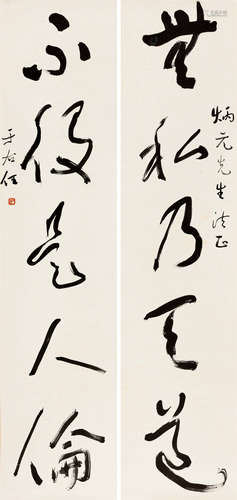 炳元先生法正
無私乃天道
不役是人倫
于右任